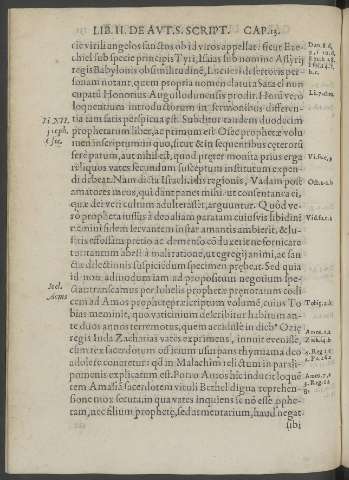 LIB. II. DE AVT. S. SCRIPT. CAP. 13.
cie virili angelos sanctos ob id viros appellat: sicut Eze
chiel sub specie principis Tyri, Isaias sub nomine Assyrij
regis Babylonis ob similitudinē, Luciferi desertoris per
sonam notant, quem propria nomenclatura haec il nun
cupatū Honorius Augustodunensis prodit. Horū vero
loquentium introductorum in sermonibus differen-
tia tam satis perspicua est. Subditur tandem duodecim
prophetarum liber, ac primum est Osee prophetæ volu
men inscriptum in quo, sicut & in sequentibus ceterorū
ferè parum, aut nihil est, quod præter monita prius erga
reliquos vates secundum susceptum institutum expen-
di debeat. Nam dicta Israelitidis regionis, Vadam post
amatores meos, qui dant panes mihi, & consentanea ei,
quæ dei veri cultum adulterasset, arguuntur. Quòd ve-
rò propheta iussus à deo aliam paratam cuiusvis libidini
nemini fidem servantem instar amantis ambierit, & lu-
sitis effossam pretio ac demenso cōduxerit ne fornicare
tur tantum abest à mali ratione, ut egregij animi, ac san
ctæ delectionis suspiciēdum specimen præbeat. Sed quia
id non admodum iam ad propositum negotium spe-
ctat
cem ad Amos prophetæ præscriptum volumē, cuius To
bias meminit, quo vaticinium describitur habitum an-
te duos annos terremotus, quem accidisse in dieb⁹ Oziæ
regis Iuda Zacharias vates exprimens, innuit evenisse,
cùm rex sacerdotum officium usurpans thymiama deo
adolere conaretur: qđ in Malachim relictum in parali-
pomenis explicatum est. Porro Amos hic inducit loquē
tem Amasiā sacerdotem vituli Bethel digna reprehen-
sione mox secuta, in qua vates inquiens se nō esse pphe-
tam, nec filium prophetę, sed armentarium, haud negat
sibi
Li XII.
pꝛoph.
Osee.
Ioel.
Amos
Tobię. 2.b
Amos.1.a
Zach.14.b